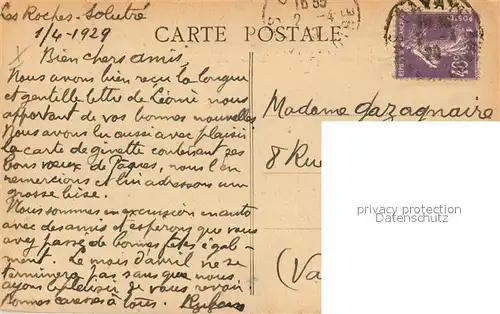 Les Roches-Solutré
1/4-1929
CARTE POSTALE
Bien chers amis,
Nous avons bien reçu la longue
et gentille lettre de Léonie nous
apportant de vos bonnes nouvelles
Nous avons lu aussi avec plaisir
la carte de ginette contenant ses
bons voeux de Pâques, nous l'en
remercions et lui adressons une
grosse bise.
Nous sommes en excursion en auto
avec des amis et espérons que vous
avez passé de bonnes fêtes égal-
ment. Le mois d'avril ne se
terminera pas sans que nous
ayons le plaisir de vous revoir
Bonnes caresses à tous.
Madame Gazagnaire
8 Rue
(Va
40c
privacy protection
Datenschutz